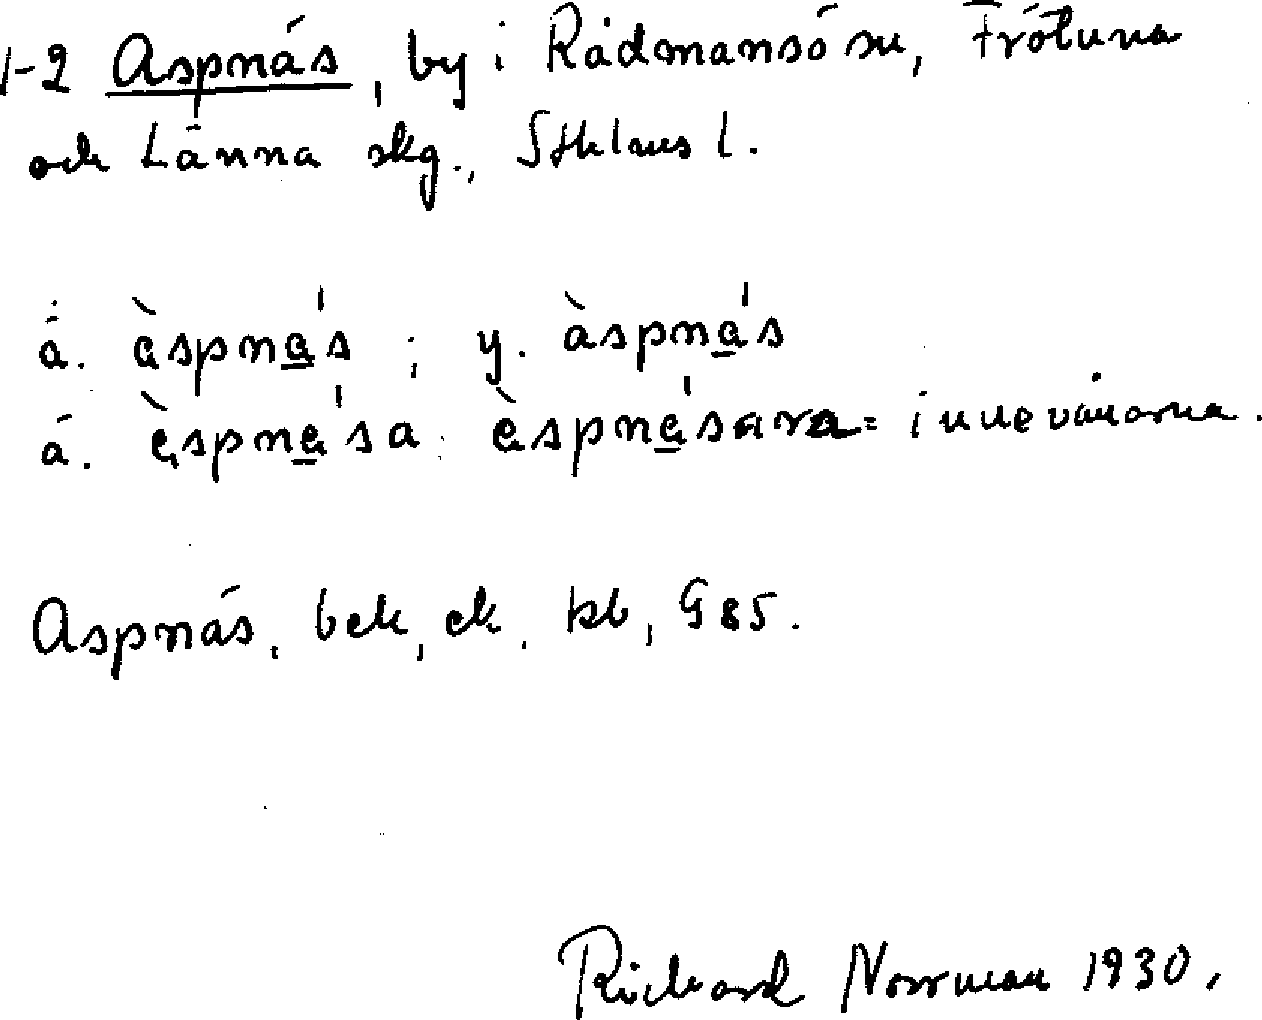 1-2 Aspnäs, by i Rådmansö sn, Frötuna
och Länna skg., Sthlms l.
ä. àspnás ; y. àspnás
ä. èspnása. èspnásara = innevånarna.
Aspnäs, bek, ek, kb, G85.
Richard Norrman 1930.